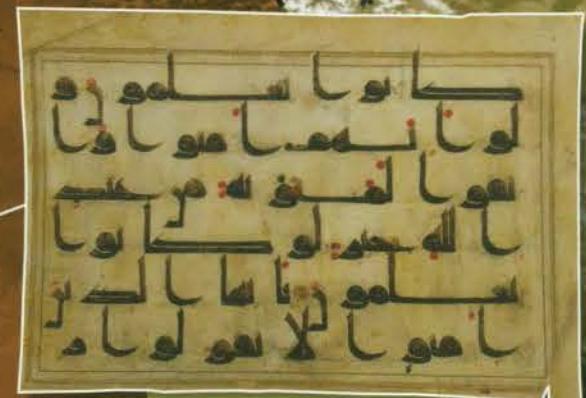 كانوا يعلمون و
لو انهم امنوا وا
تقوا لمثوبة من عند
الله خير لو كانوا
يعلمون يايها الذين
امنوا لا تقولوا ر